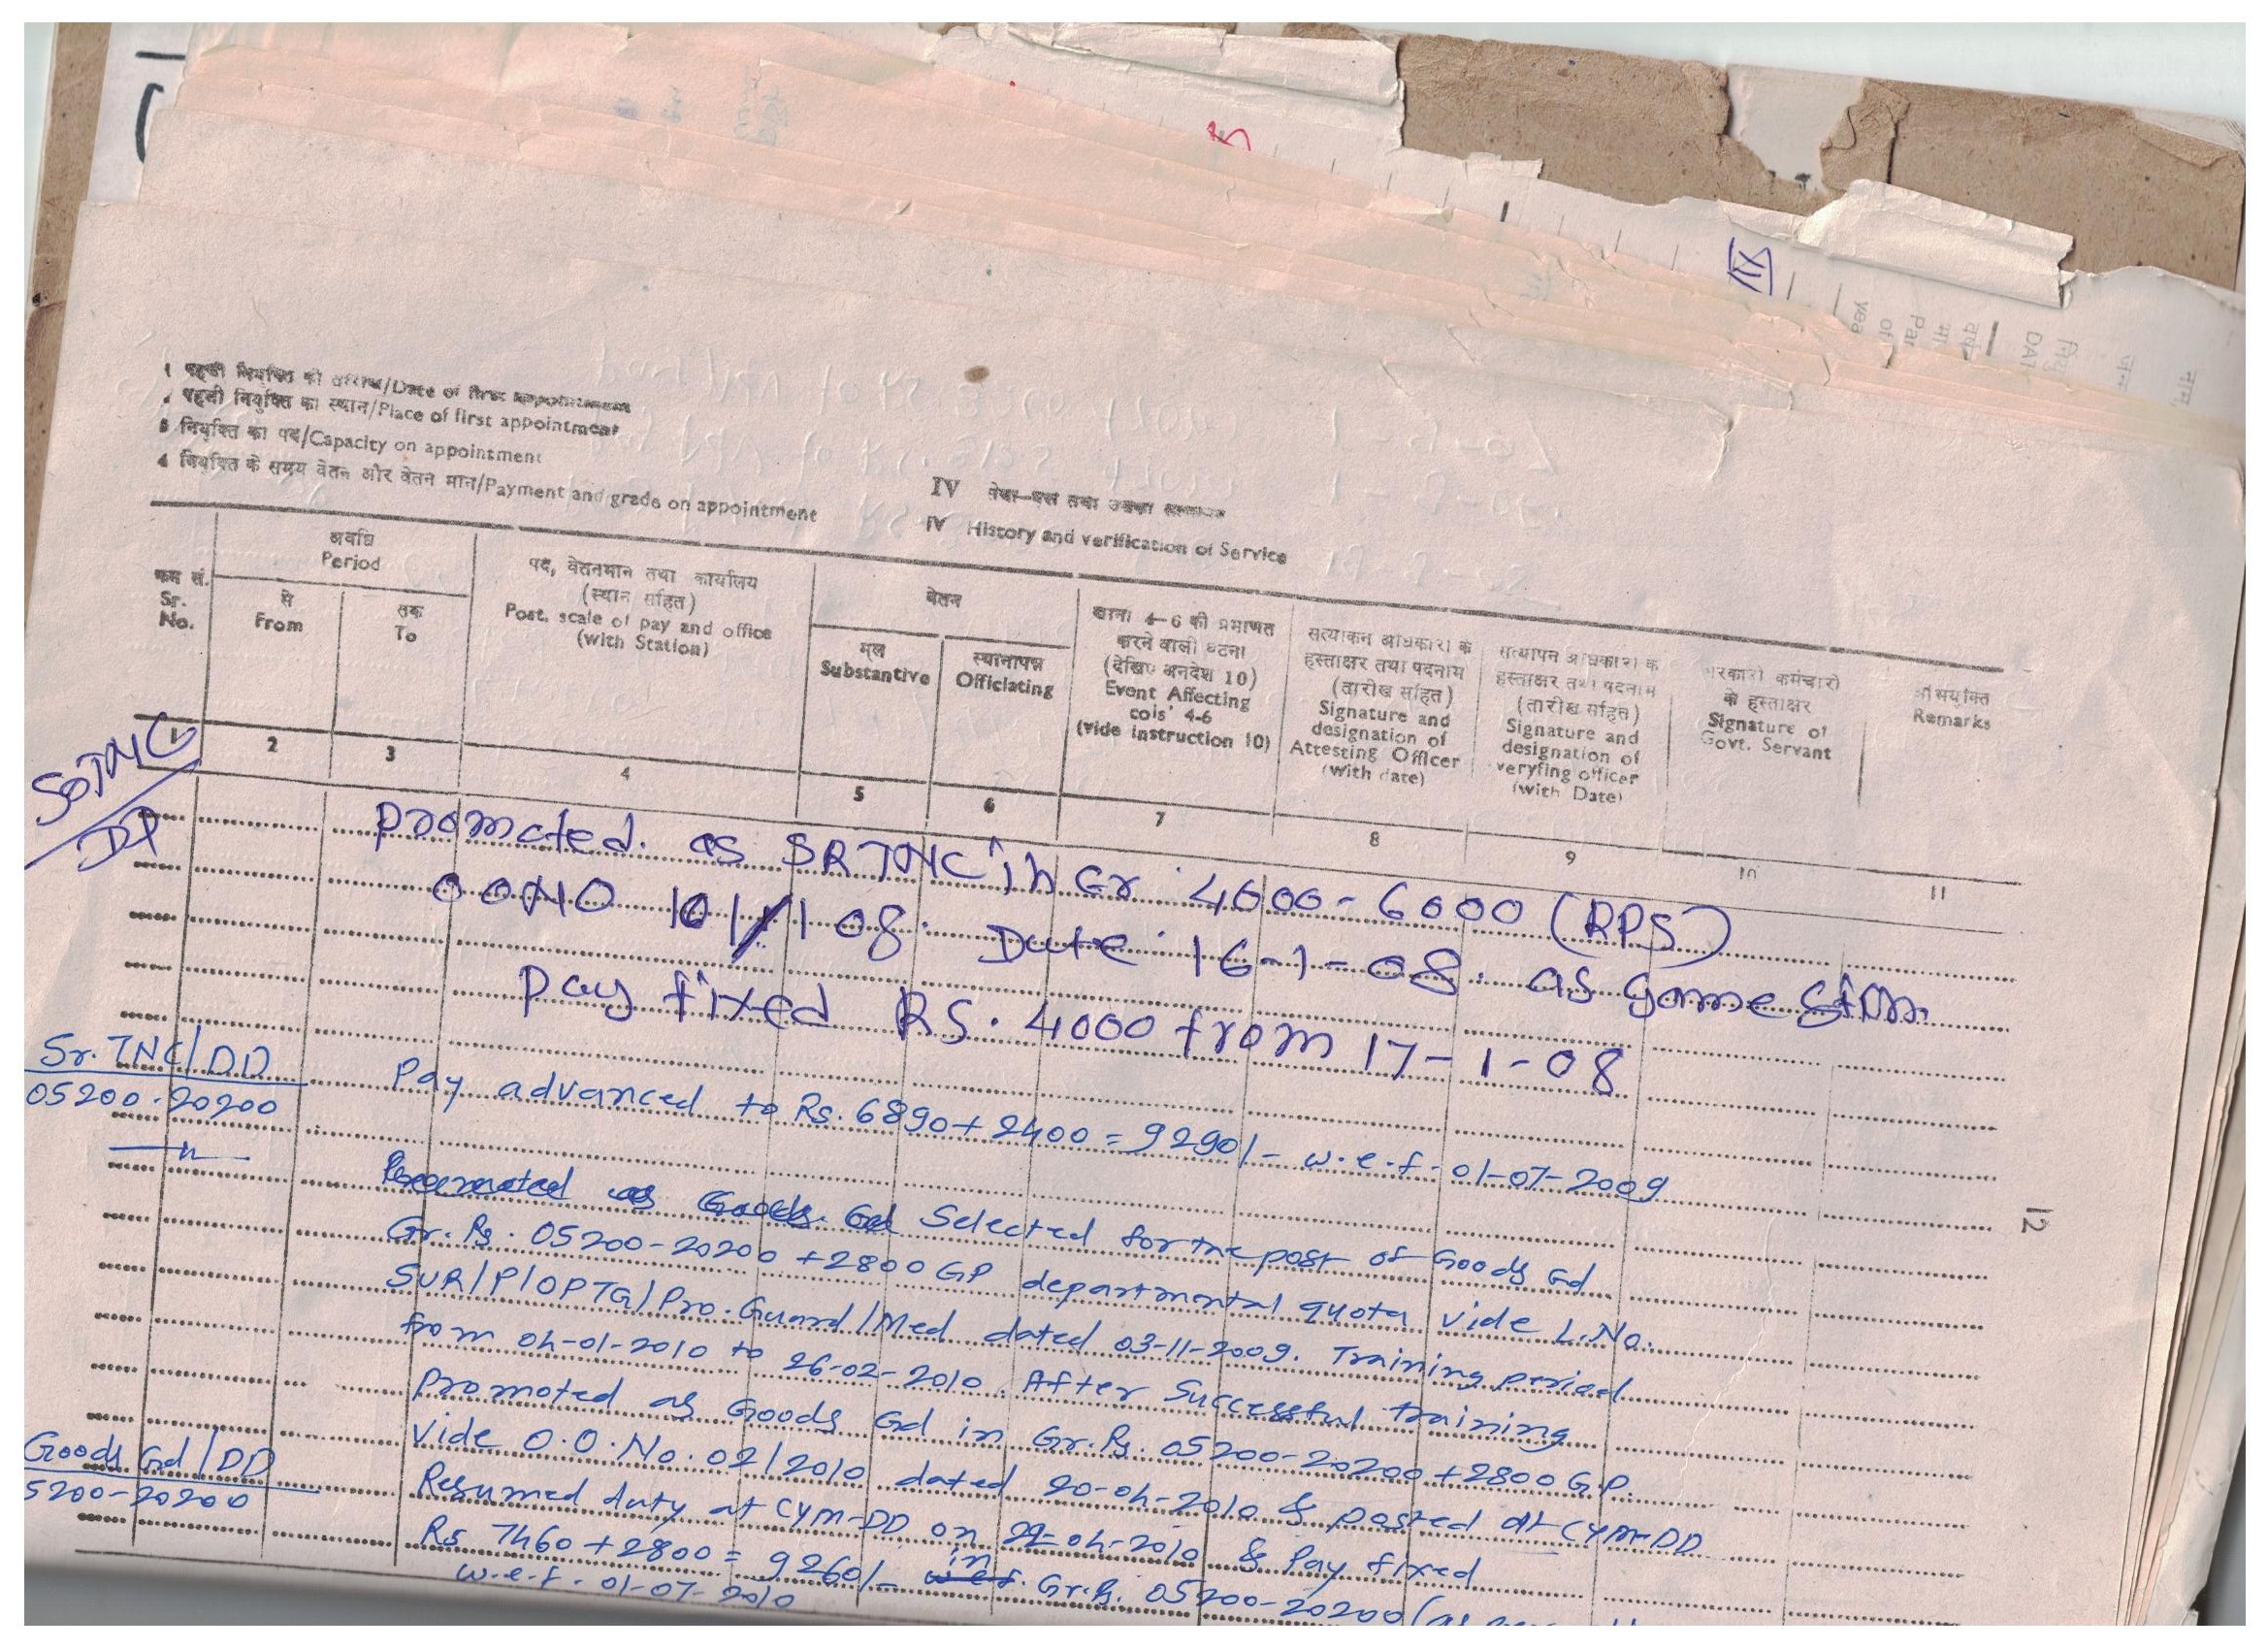 १ पहली नियुक्ति की तारीख/Date of first appointment
पहली नियुक्ति का स्थान/Place of first appointment
3 नियुक्ति का पद/Capacity on appointment
4 नियुक्ति के समय वेतन और वेतन मान/Payment and grade on appointment
IV सेवा-वृत्त तथा उसका सत्यापन
IV History and verification of Service
क्रम सं.
Sr.
No.
अवधि
Period
से
From
तक
To
पद, वेतनमान तथा कार्यालय
(स्थान सहित)
Post, scale of pay and office
(with Station)
वेतन
मूल
Substantive
स्थानापन्न
Officiating
खाना 4-6 की प्रमाणित
करने वाली घटना
(देखिए अनदेश 10)
Event Affecting
cols' 4-6
(vide instruction 10)
सत्याकन अधिकारी के
हस्ताक्षर तथा पदनाम
(तारीख सहित)
Signature and
designation of
Attesting Officer
(with date)
सत्यापन अधिकारी के
हस्ताक्षर तथा पदनाम
(तारीख सहित)
Signature and
designation of
veryfing officer
(with Date)
सरकारी कर्मचारी
के हस्ताक्षर
Signature of
Govt. Servant
अभियुक्ति
Remarks
1 2 3 4 5 6 7 8 9 10 11
promoted. as SR TNC in Gr. 4000-6000 (RPS)
OONO 101/1 08. Date. 16-1-08. as same Stn.
Pay fixed RS. 4000 from 17-1-08
Sr. TNC/DD
05200-20200
Pay advanced to Rs. 6890+2400 = 9290/- w.e.f. 01-07-2009
Promoted as Goods Gd Selected for the post of Goods Gd
Gr. Rs. 05200-20200 +2800 GP departmental quota vide L.No.
SUR/P/OPTG/Pro.Guard/Med dated 03-11-2009. Training period
from 04-01-2010 to 26-02-2010. After Successful training
promoted as Goods Gd in Gr. Rs. 05200-20200+2800 G.P.
Vide O.O.No. 02/2010 dated 20-04-2010 & posted at CYM-DD
Goods Gd/DD
5200-20200
Resumed duty at CYM-DD on 22-04-2010 & Pay fixed
Rs 7460+2800 = 9260/- in Gr. Rs. 05200-20200 (as per
w.e.f. 01-07-2010
12
XII